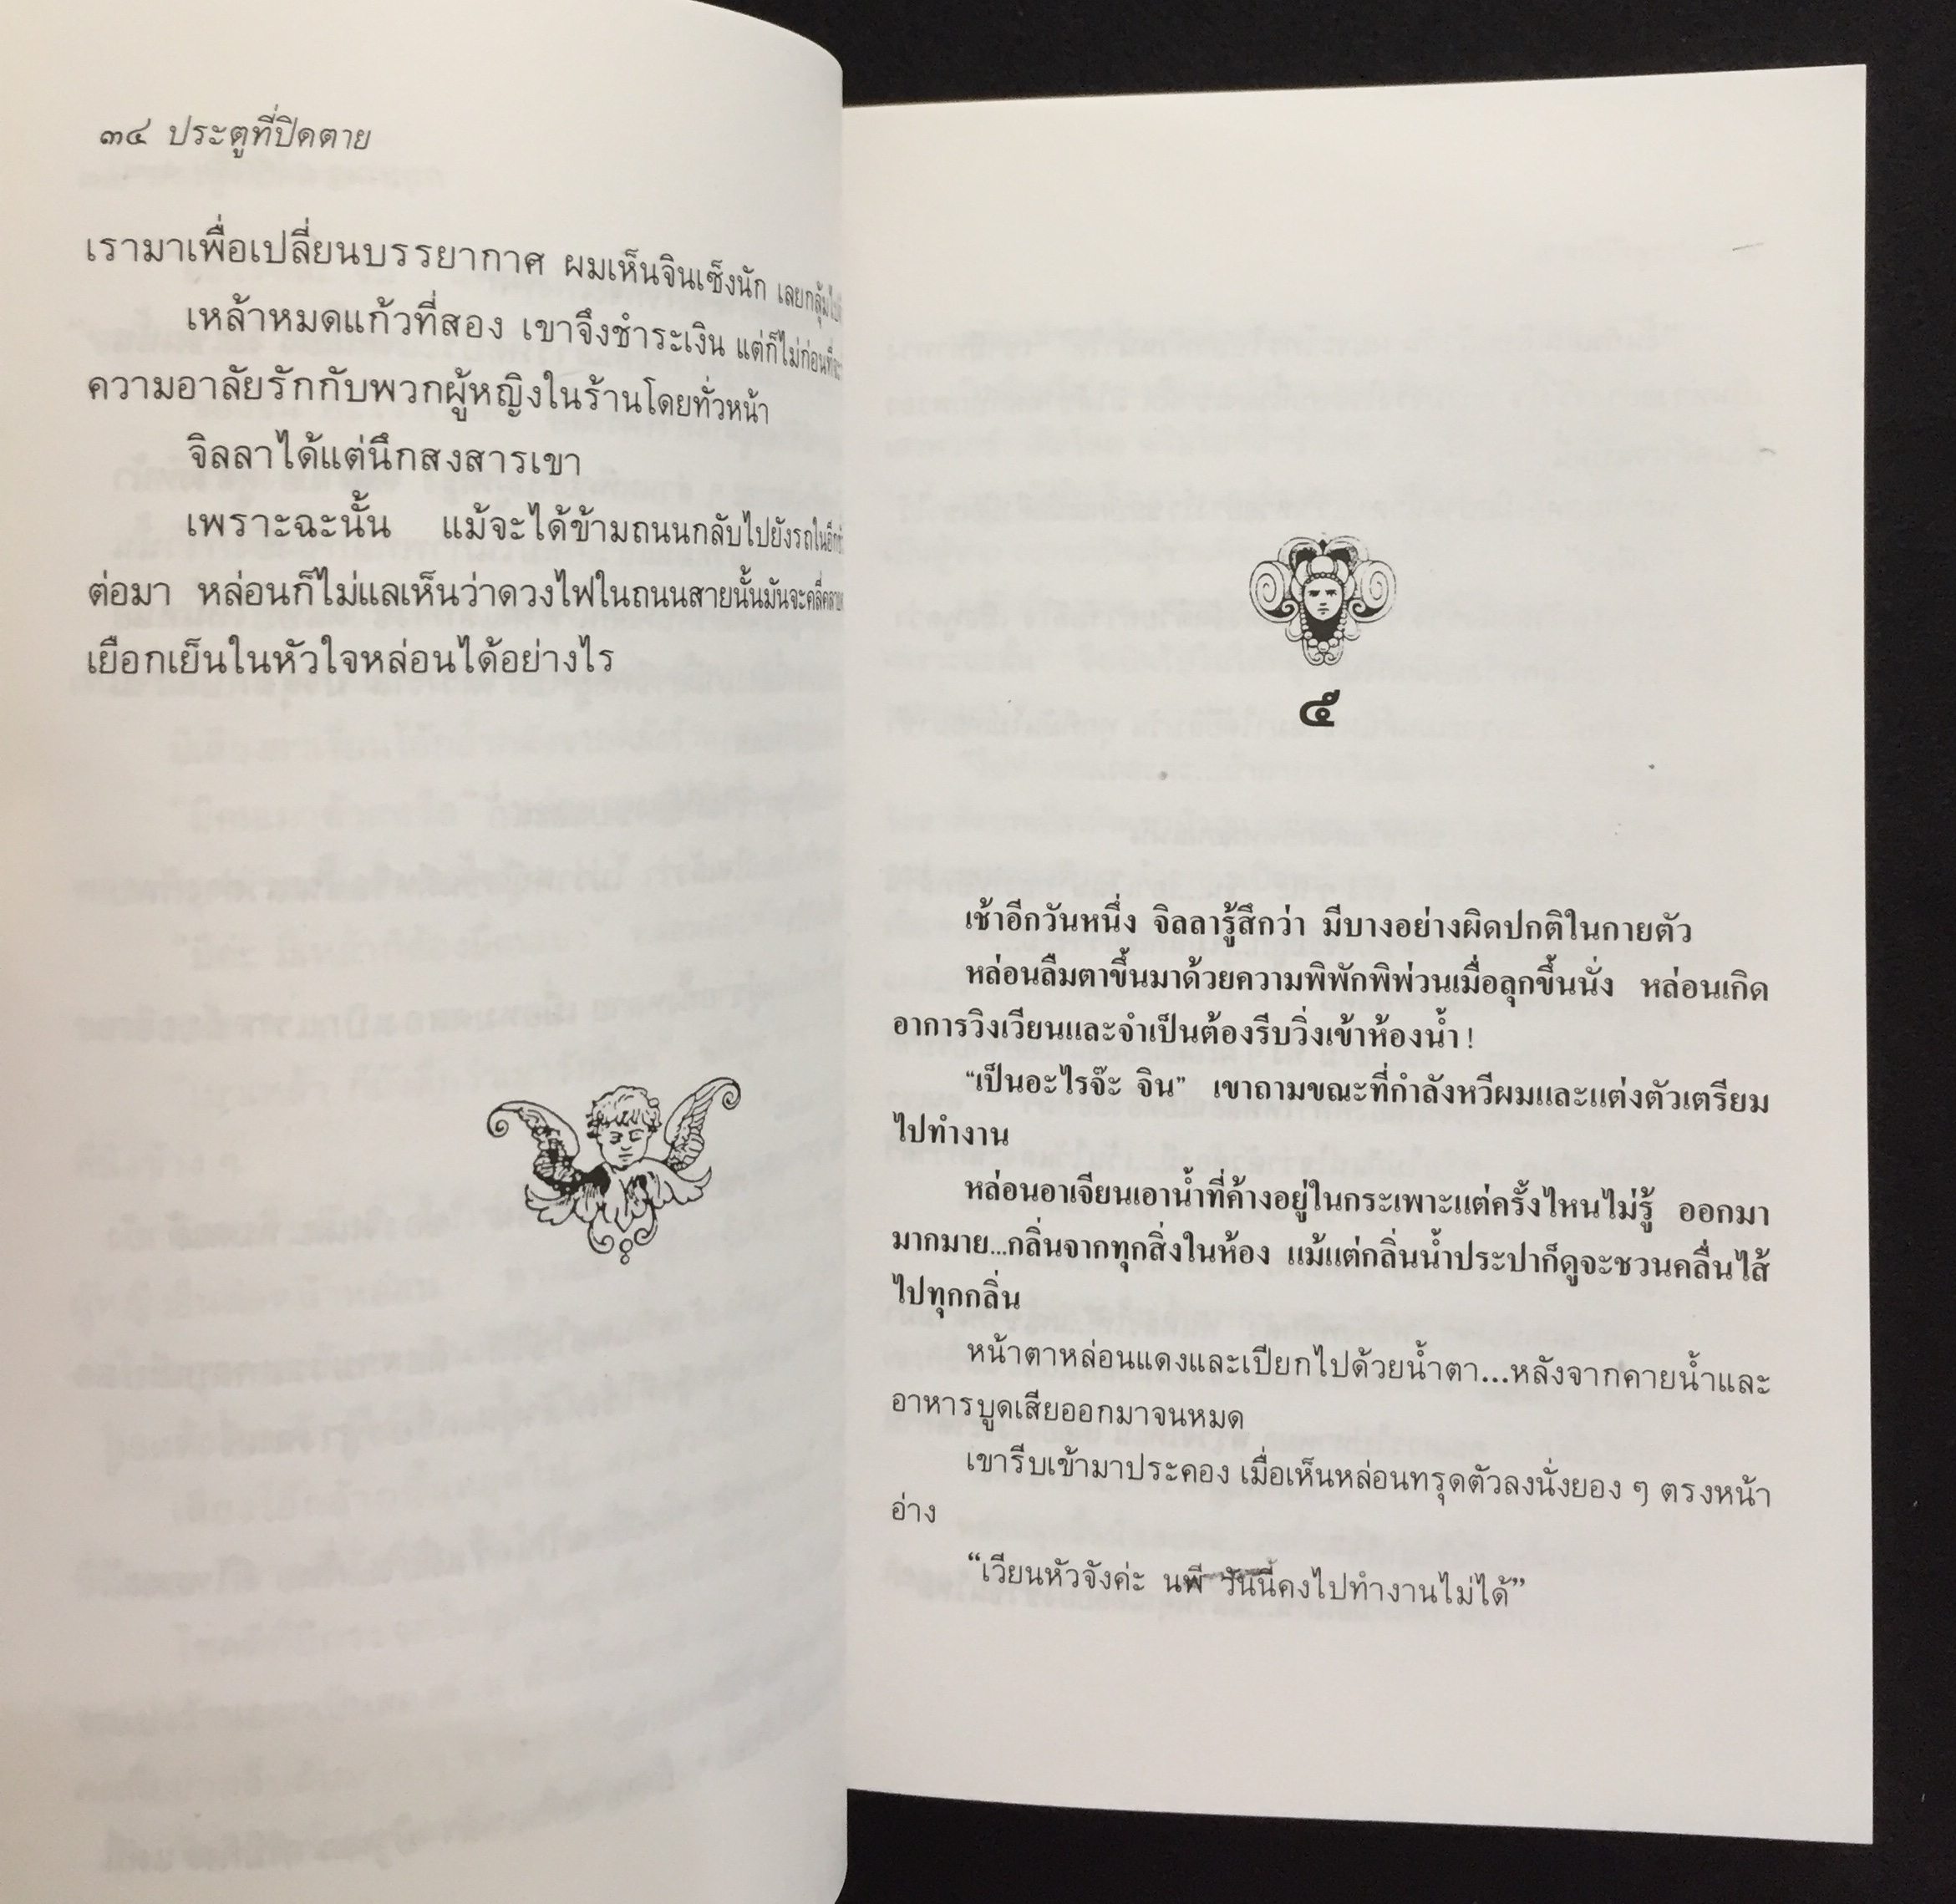 ๓๔ ประตูที่ปิดตาย
เรามาเพื่อเปลี่ยนบรรยากาศ ผมเห็นจินเซ็งนัก เลยกลุ้มไป
เหล้าหมดแก้วที่สอง เขาจึงชำระเงิน แต่ก็ไม่ก่อนที่จะ
ความอาลัยรักกับพวกผู้หญิงในร้านโดยทั่วหน้า
จิลลาได้แต่นึกสงสารเขา
เพราะฉะนั้น แม้จะได้ข้ามถนนกลับไปยังรถใน
ต่อมา หล่อนก็ไม่แลเห็นว่าดวงไฟในถนนสายนั้นมันจะ
เยือกเย็นในหัวใจหล่อนได้อย่างไร
๕
เช้าอีกวันหนึ่ง จิลลารู้สึกว่า มีบางอย่างผิดปกติในกายตัว
หล่อนลืมตาขึ้นมาด้วยความพิพักพิพ่วนเมื่อลุกขึ้นนั่ง หล่อนเกิด
อาการวิงเวียนและจำเป็นต้องรีบวิ่งเข้าห้องน้ำ!
“เป็นอะไรจ๊ะ จิน” เขาถามขณะที่กำลังหวีผมและแต่งตัวเตรียม
ไปทำงาน
หล่อนอาเจียนเอาน้ำที่ค้างอยู่ในกระเพาะแต่ครั้งไหนไม่รู้ ออกมา
มากมาย...กลิ่นจากทุกสิ่งในห้อง แม้แต่กลิ่นน้ำประปาก็ดูจะชวนคลื่นไส้
ไปทุกกลิ่น
หน้าตาหล่อนแดงและเปียกไปด้วยน้ำตา...หลังจากคายน้ำและ
อาหารบูดเสียออกมาจนหมด
เขารีบเข้ามาประคอง เมื่อเห็นหล่อนทรุดตัวลงนั่งยอง ๆ ตรงหน้า
อ่าง
“เวียนหัวจังค่ะ นพี วันนี้คงไปทำงานไม่ได้”